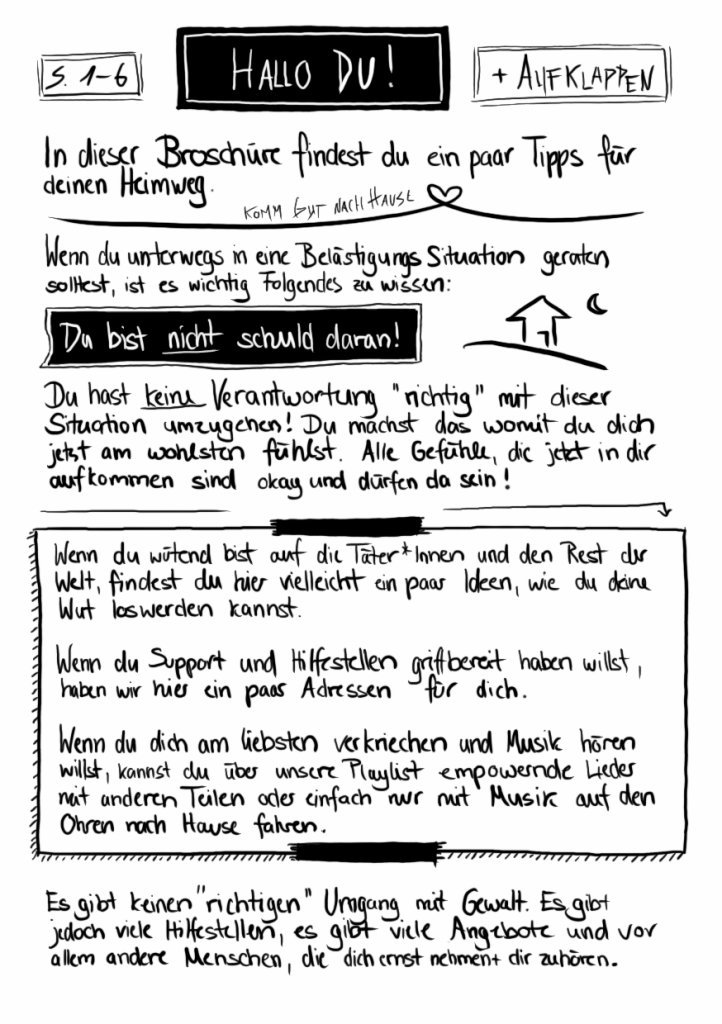 S. 1-6
HALLO DU!
+ AUFKLAPPEN
In dieser Broschüre findest du ein paar Tipps für
deinen Heimweg.
KOMM GUT NACH HAUSE
Wenn du unterwegs in eine Belästigungs Situation geraten
solltest, ist es wichtig Folgendes zu wissen:
Du bist nicht schuld daran!
Du hast keine Verantwortung "richtig" mit dieser
Situation umzugehen! Du machst das womit du dich
jetzt am wohlsten fühlst. Alle Gefühle, die jetzt in dir
aufkommen sind okay und dürfen da sein!
Wenn du wütend bist auf die Täter*Innen und den Rest der
Welt, findest du hier vielleicht ein paar Ideen, wie du deine
Wut loswerden kannst.
Wenn du Support und Hilfestellen griffbereit haben willst,
haben wir hier ein paar Adressen für dich.
Wenn du dich am liebsten verkriechen und Musik hören
willst, kannst du über unsere Playlist empowernde Lieder
mit anderen Teilen oder einfach nur mit Musik auf den
Ohren nach Hause fahren.
Es gibt keinen "richtigen" Umgang mit Gewalt. Es gibt
jedoch viele Hilfestellen, es gibt viele Angebote und vor
allem andere Menschen, die dich ernst nehmen+ dir zuhören.